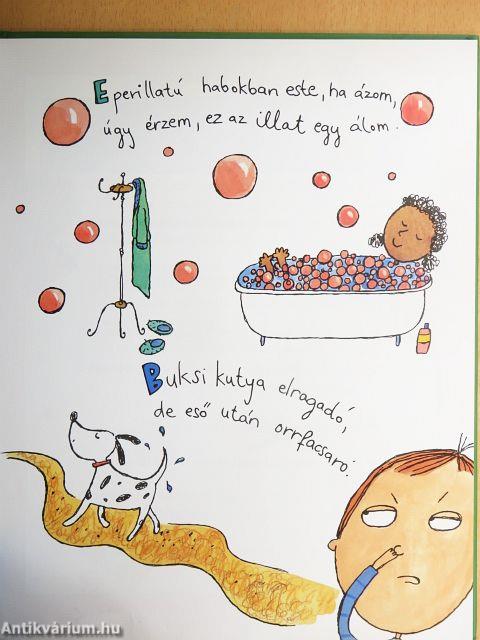 Eperillatú habokban este, ha ázom,
úgy érzem, ez az illat egy álom.
Buksi kutya elragadó,
de eső után orrfacsaró.
Antikvárium.hu